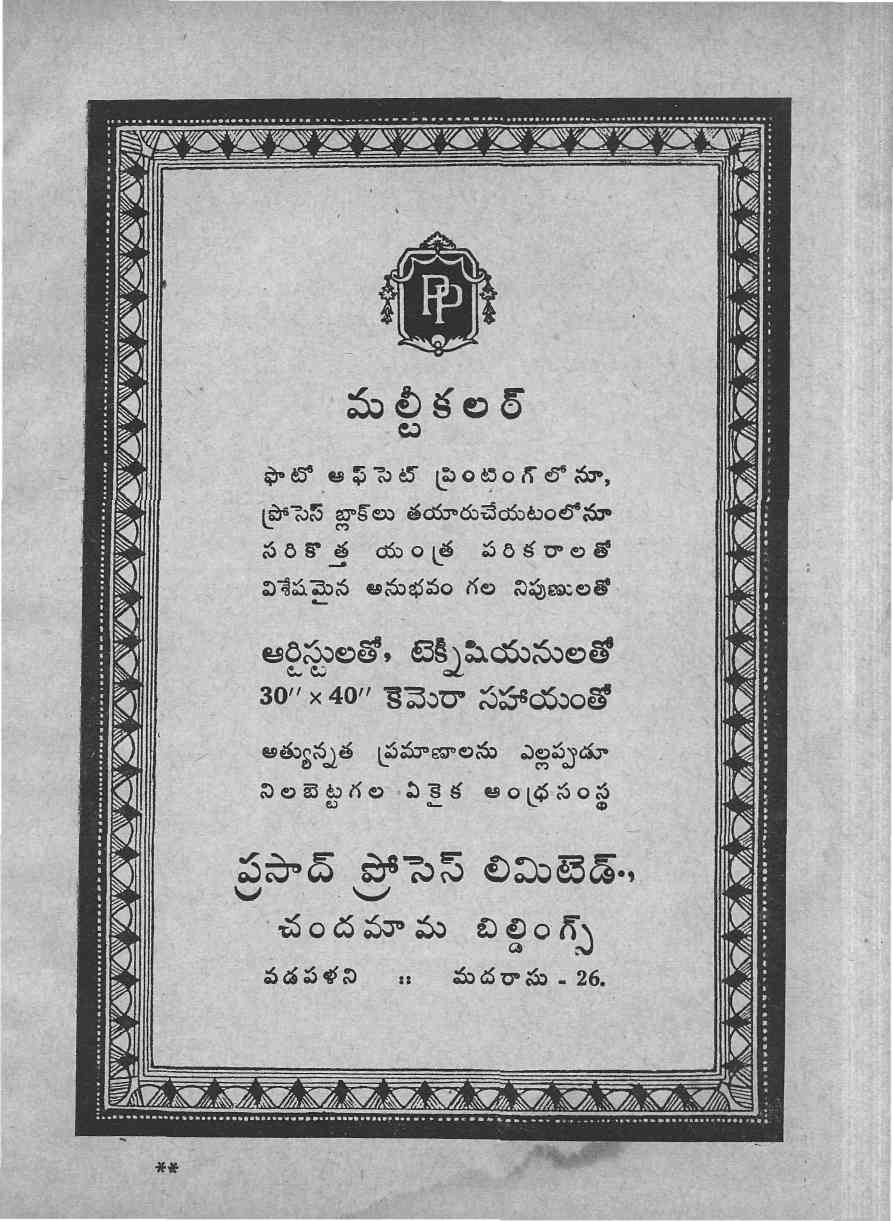 PP
మల్టీకలర్
ఫొటో ఆఫ్‌సెట్ ప్రింటింగ్‌లోనూ,
ప్రోసెస్ బ్లాక్‌లు తయారుచేయటంలోనూ
సరికొత్త యంత్ర పరికరాలతో
విశేషమైన అనుభవం గల నిపుణులతో
ఆర్టిస్టులతో, టెక్నీషియనులతో
30″ × 40″ కెమెరా సహాయంతో
అత్యున్నత ప్రమాణాలను ఎల్లప్పుడూ
నిలబెట్టగల ఏకైక ఆంధ్రసంస్థ
ప్రసాద్ ప్రోసెస్ లిమిటెడ్.,
చందమామ బిల్డింగ్స్
వడపళని :: మదరాసు - 26.
**